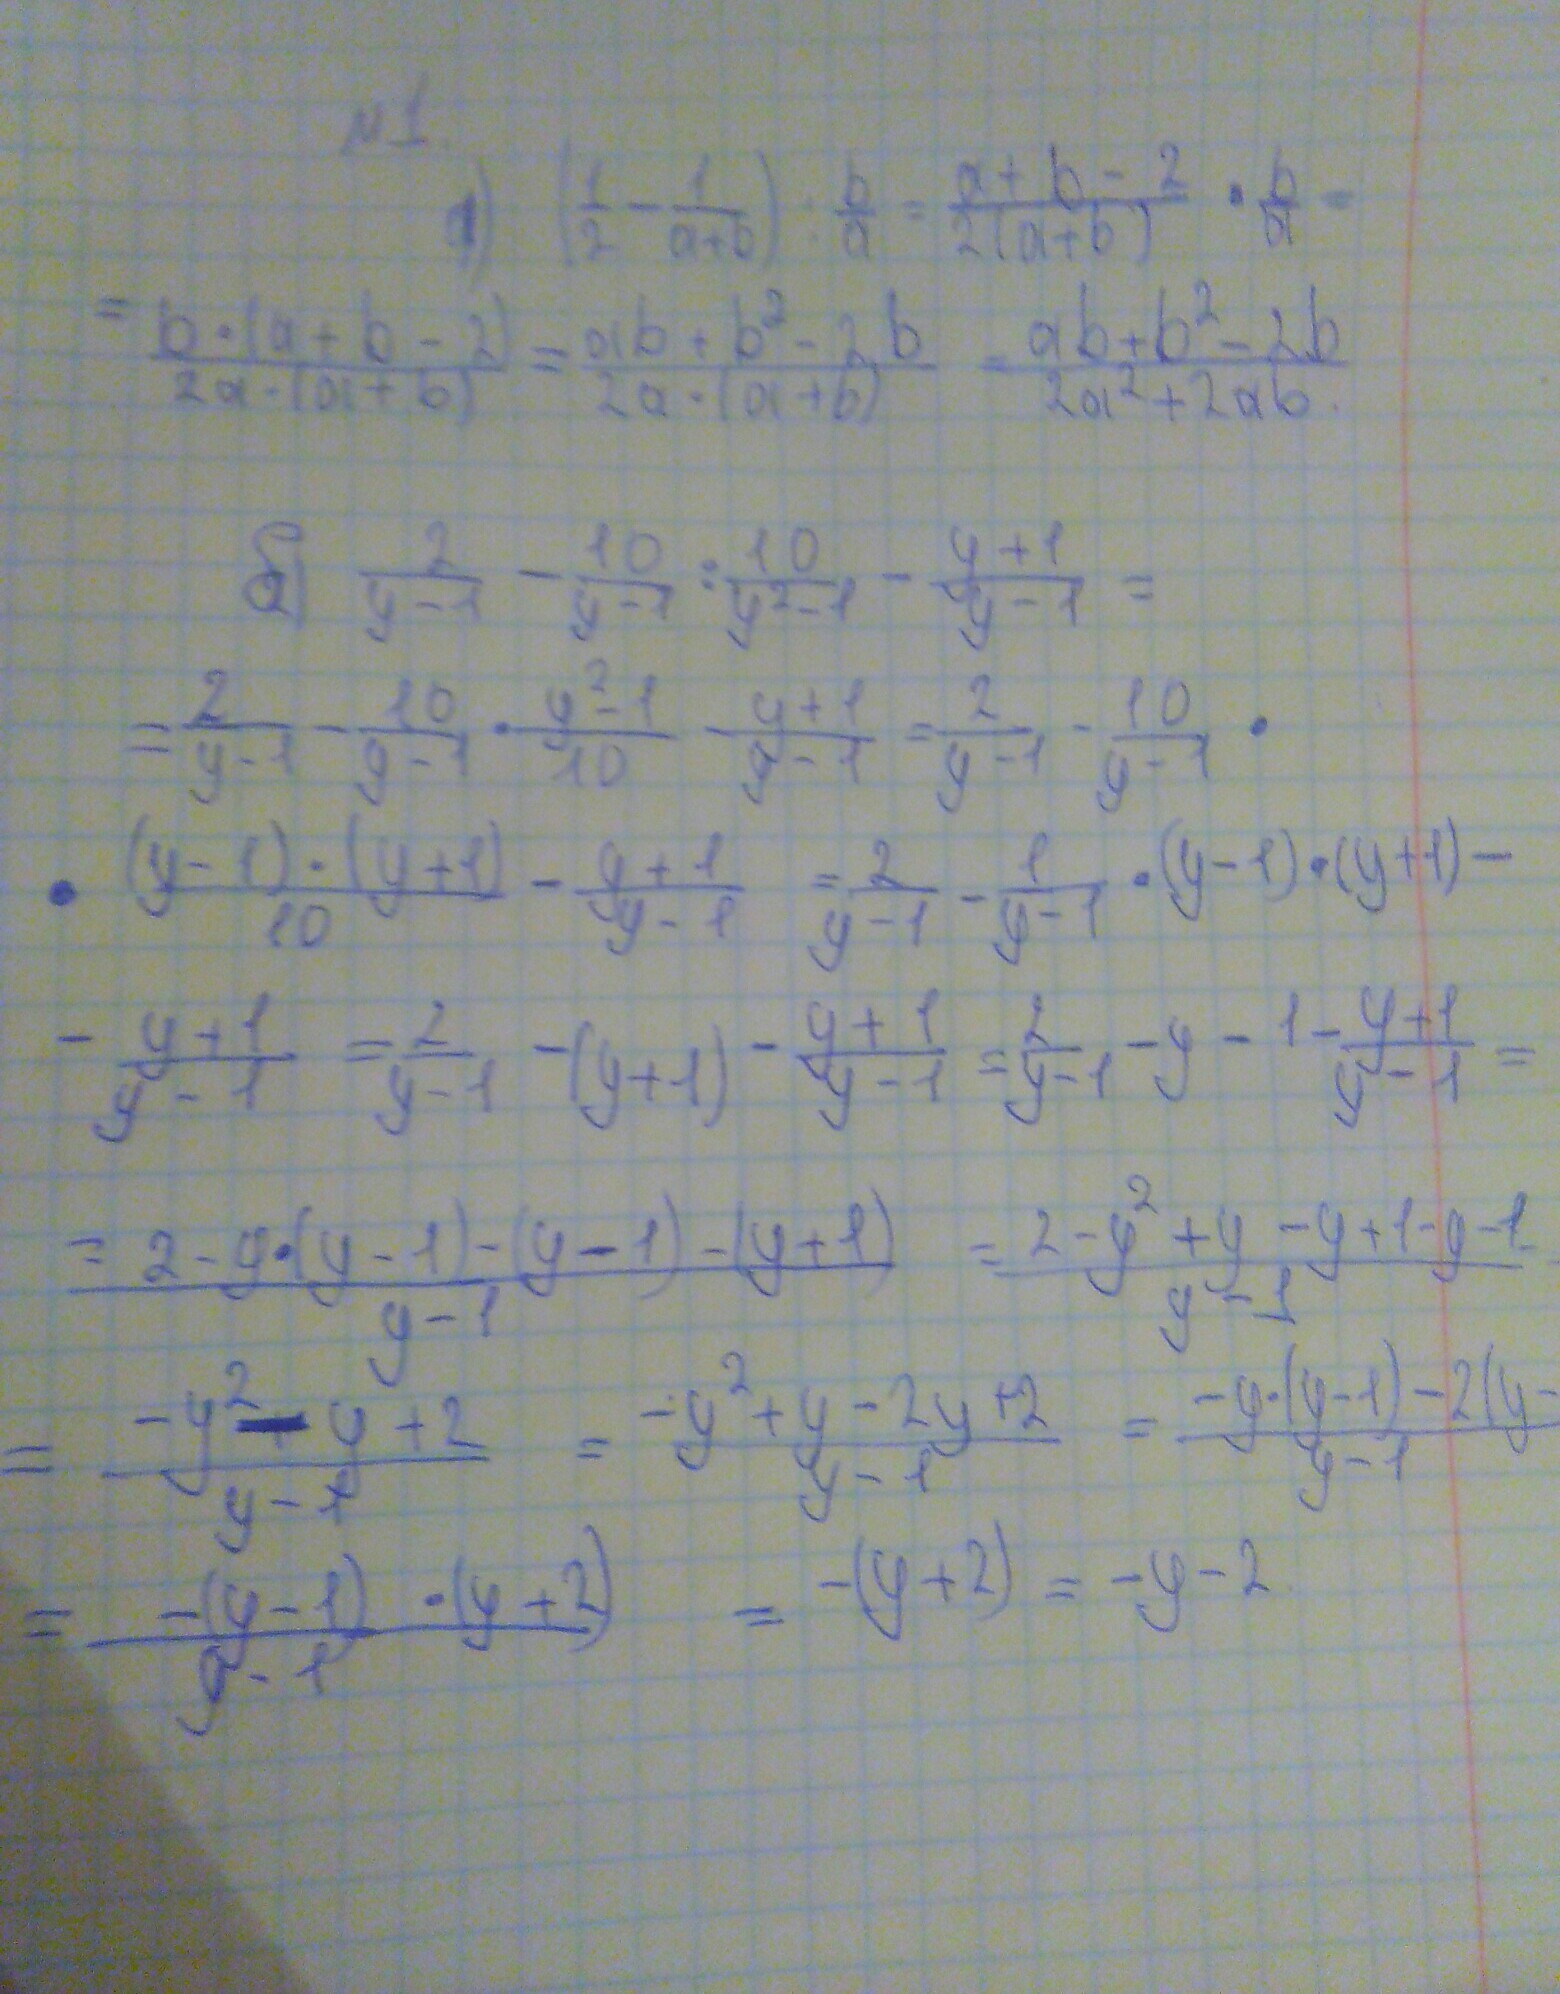 №1.
а) (1/2 - 1/(a+b)) · b/a = (a+b-2)/(2(a+b)) · b/a =
= (b·(a+b-2))/(2a·(a+b)) = (ab+b²-2b)/(2a·(a+b)) = (ab+b²-2b)/(2a²+2ab).
б) 2/(y-1) - 10/(y-1) : 10/(y²-1) - (y+1)/(y-1) =
= 2/(y-1) - 10/(y-1) · (y²-1)/10 - (y+1)/(y-1) = 2/(y-1) - 10/(y-1) ·
· ((y-1)·(y+1))/10 - (y+1)/(y-1) = 2/(y-1) - 1/(y-1) · (y-1)·(y+1) -
- (y+1)/(y-1) = 2/(y-1) - (y+1) - (y+1)/(y-1) = 2/(y-1) - y - 1 - (y+1)/(y-1) =
= (2-y·(y-1)-(y-1)-(y+1))/(y-1) = (2-y²+y-y+1-y-1)/(y-1)
= (-y²-y+2)/(y-1) = (-y²+y-2y+2)/(y-1) = (-y·(y-1)-2(y-)/(y-1)
= (-(y-1)·(y+2))/(y-1) = -(y+2) = -y-2